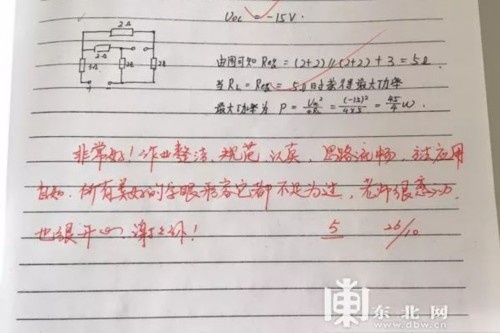 Uoc = -15V.
2Ω
2Ω
3Ω
2Ω
2Ω
由图可知 Req = (2+2)//(2+2) + 3 = 5Ω
当 RL = Req = 5Ω时可获得最大功率
最大功率为 P = = = 45/4 W.
非常好!作业整洁、规范、认真,思路流畅,方法应用
自如.所有美好的字眼形容它都不足为过,老师很感动,
也很开心.谢谢你!
5 26/10
东北网
www.dbw.cn